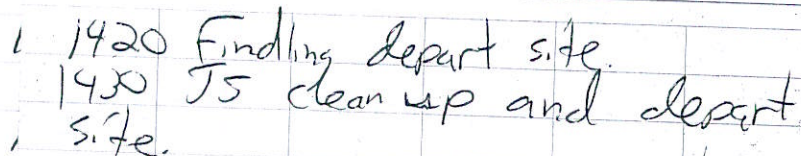 1420 Findling depart site.
1430 JS clean up and depart
site.